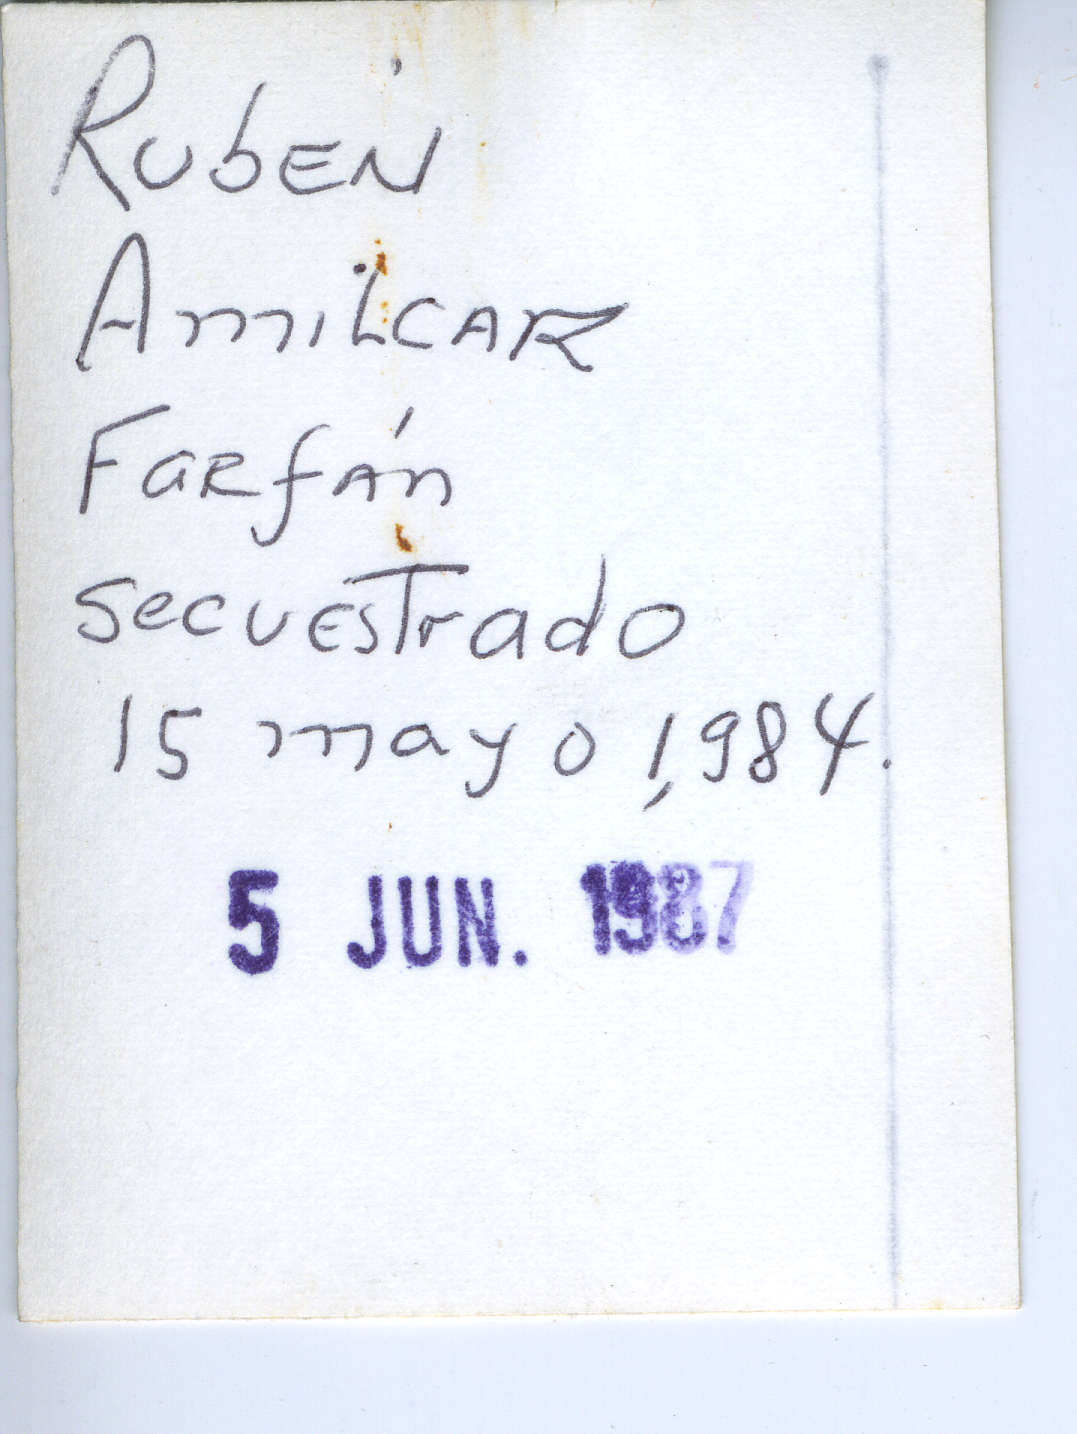 Rubén
Amilcar
Farfán
secuestrado
15 mayo 1,984.
5 JUN. 1987